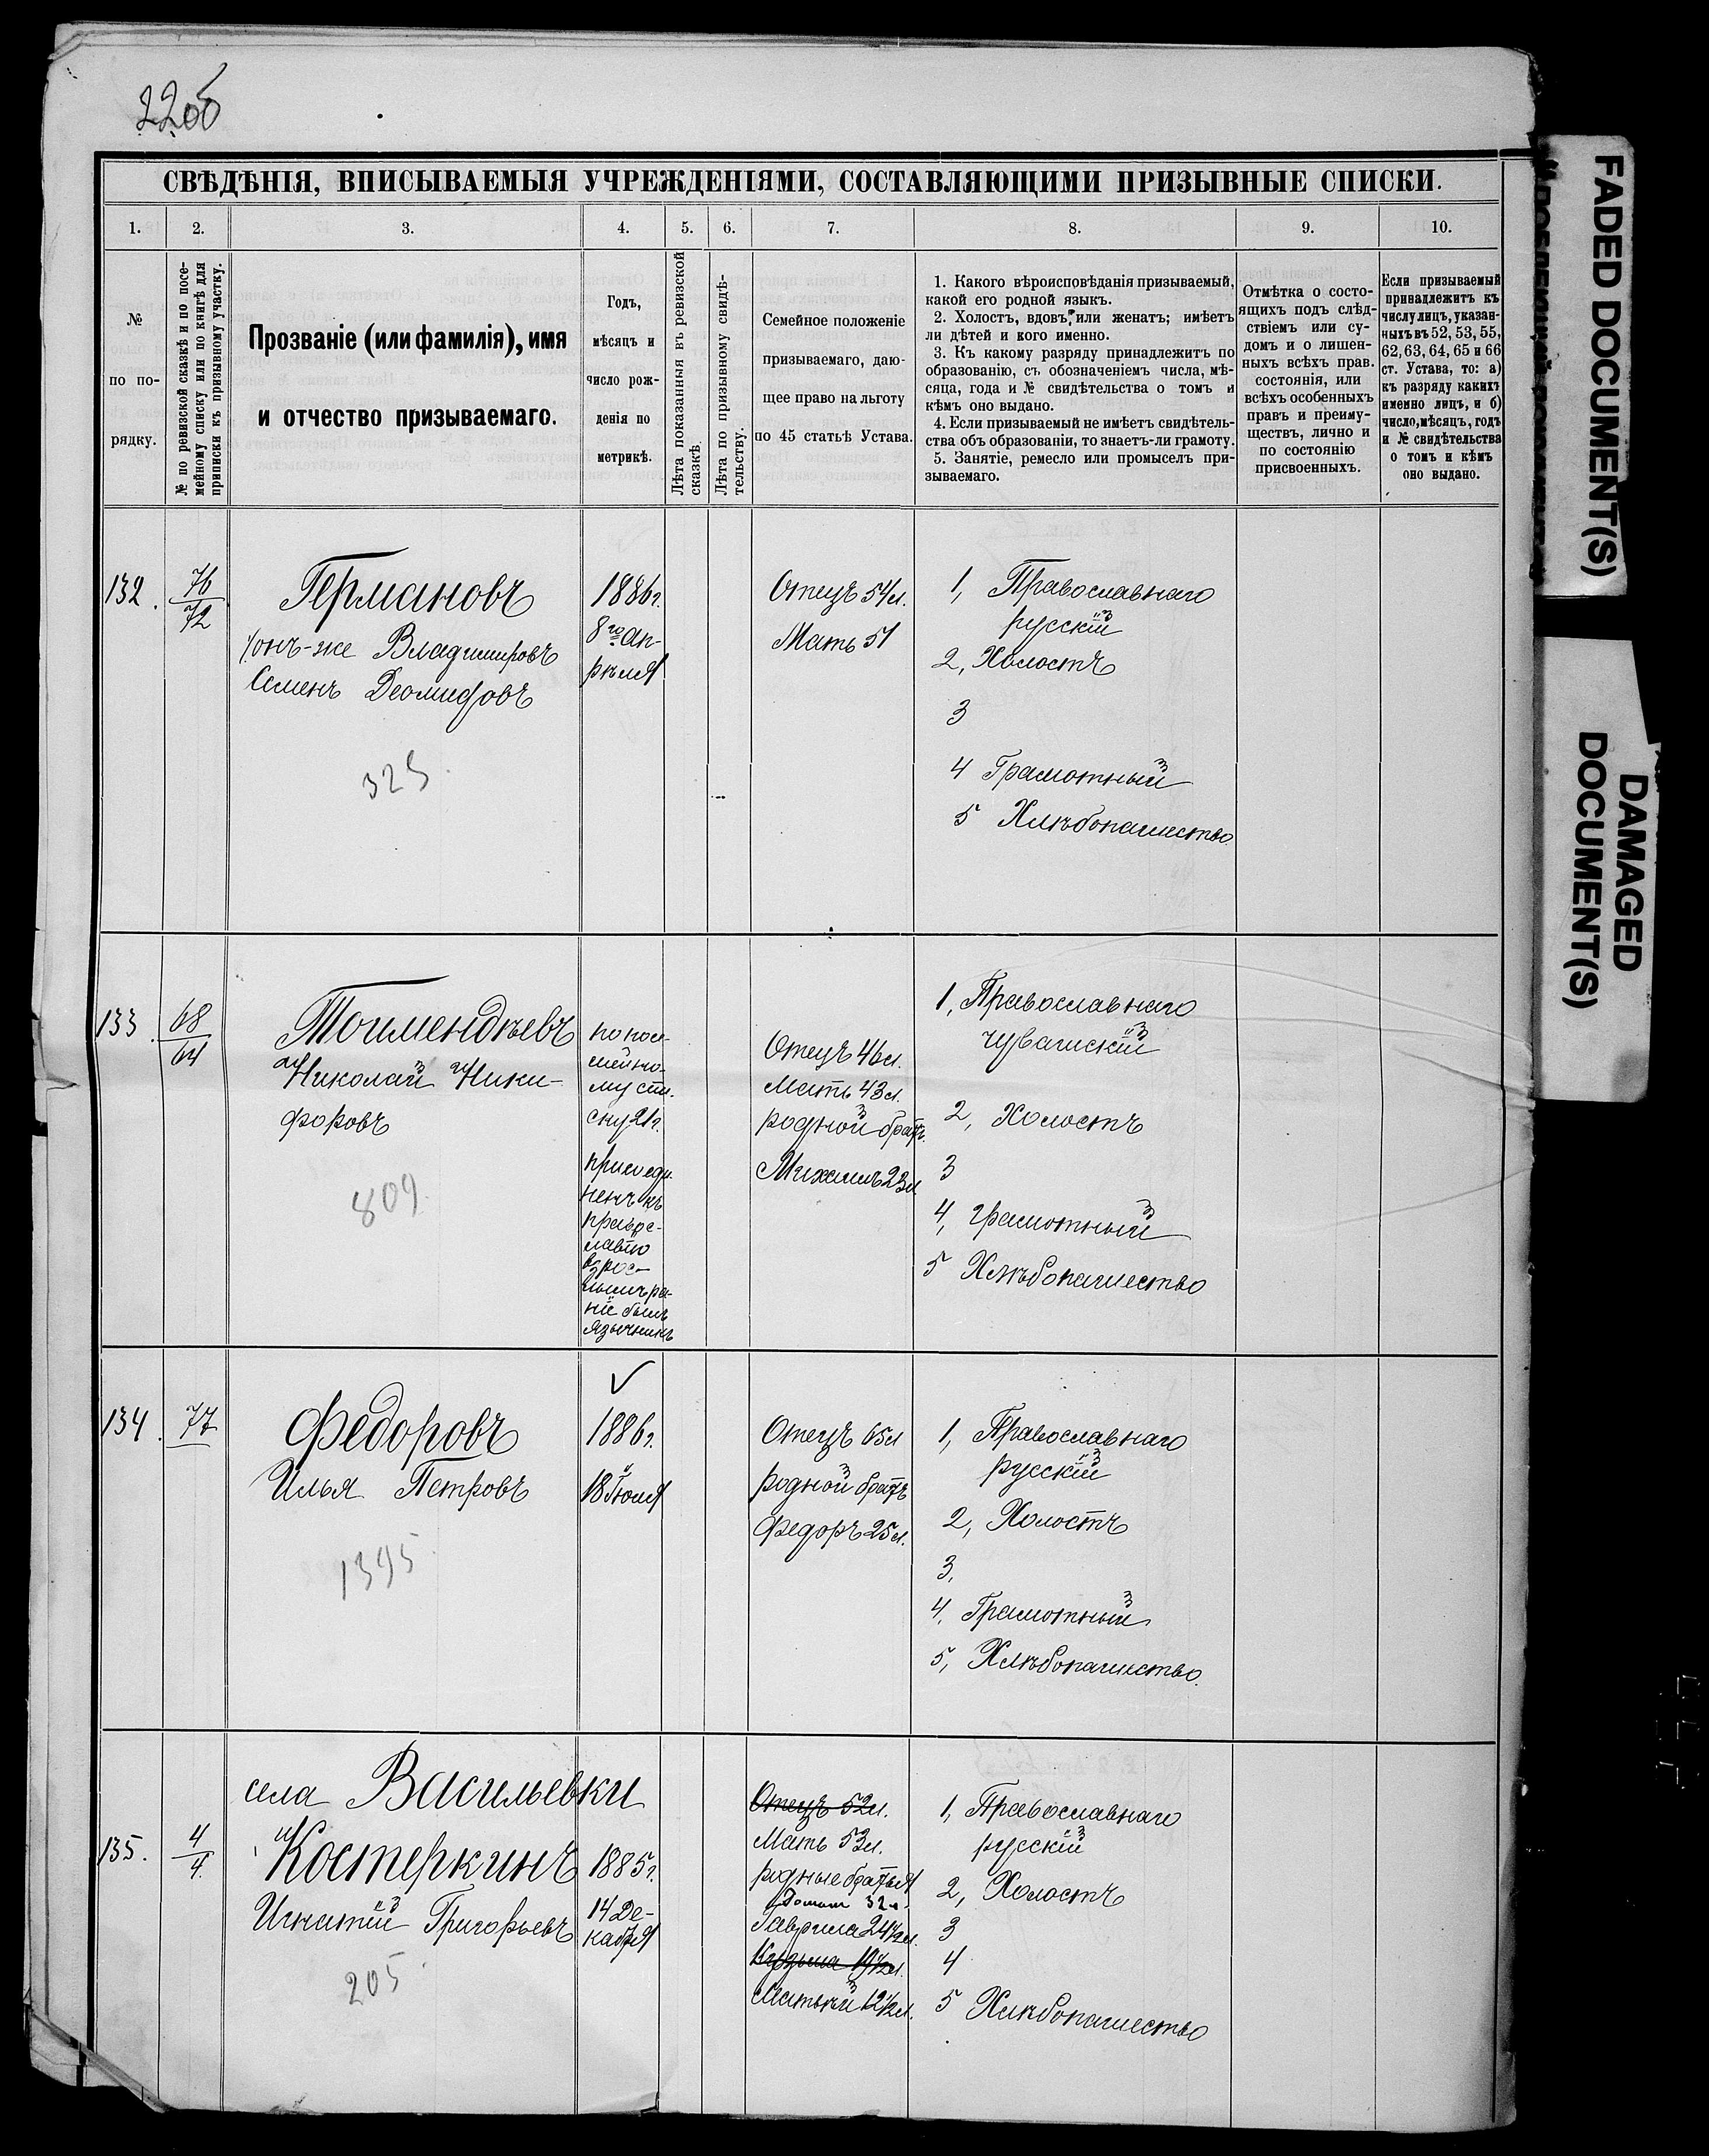 220б
СВѢДѢНІЯ, ВПИСЫВАЕМЫЯ УЧРЕЖДЕНІЯМИ, СОСТАВЛЯЮЩИМИ ПРИЗЫВНЫЕ СПИСКИ.
1. 2. 3. 4. 5. 6. 7. 8. 9. 10.
№
по по-
рядку.
№ по ревизской сказкѣ и по посе-
мейному списку или по книгѣ для
приписки къ призывному участку.
Прозваніе (или фамилія), имя
и отчество призываемаго.
Годъ,
мѣсяцъ и
число рож-
денія по
метрикѣ.
Лѣта показанныя въ ревизской
сказкѣ.
Лѣта по призывному свидѣ-
тельству.
Семейное положеніе
призываемаго, даю-
щее право на льготу
по 45 статьѣ Устава.
1. Какого вѣроисповѣданія призываемый,
какой его родной языкъ.
2. Холостъ, вдовъ, или женатъ; имѣетъ
ли дѣтей и кого именно.
3. Къ какому разряду принадлежитъ по
образованію, съ обозначеніемъ числа, мѣ-
сяца, года и № свидѣтельства о томъ и
кѣмъ оно выдано.
4. Если призываемый не имѣетъ свидѣтель-
ства объ образованіи, то знаетъ-ли грамоту.
5. Занятіе, ремесло или промыселъ при-
зываемаго.
Отмѣтка о состо-
ящихъ подъ слѣд-
ствіемъ или су-
домъ и о лишен-
ныхъ всѣхъ прав.
состоянія, или
всѣхъ особенныхъ
правъ и преиму-
ществъ, лично и
по состоянію
присвоенныхъ.
Если призываемый
принадлежитъ къ
числу лицъ, указан-
ныхъ въ 52, 53, 55,
62, 63, 64, 65 и 66
ст. Устава, то: а)
къ разряду какихъ
именно лицъ, и б)
число, мѣсяцъ, годъ
и № свидѣтельства
о томъ и кѣмъ
оно выдано.
132.
76
72
Германовъ
онъ-же Владимировъ
Семенъ Деомидовъ
325
1886г.
8го Ап-
рѣля
Отецъ 54л.
Мать 51
1, Православнаго
русскій
2, Холостъ
3
4 Грамотный
5 Хлѣбопашество
133.
68
64
Тоимендѣевъ
Николай Ники-
форовъ
809
по посе-
мейно-
му спи-
ску 21г.
присоеди-
ненъ къ
правос-
лавію
взрос-
лымъ ра-
нѣе былъ
язычникъ
Отецъ 46л.
Мать 43л.
родной братъ
Михаилъ 23л
1, Православнаго
чувашскій
2, Холостъ
3
4, грамотный
5 Хлѣбопашество
134.
77
Федоровъ
Илья Петровъ
1395
1886г.
18 Іюля
Отецъ 65л
родной братъ
Федоръ 25л.
1, Православнаго
русскій
2, Холостъ
3,
4, Грамотный
5, Хлѣбопашество.
села Васильевки
135.
4
4.
Костеркинъ
Игнатій Григорьевъ
205
1885г.
14 Де-
кабря
Отецъ 52л.
Мать 53л.
родные братья
32л.
Гаврила 24½л.
Кузьма 19½л.
Матвѣй 12½л.
1, Православнаго
русскій
2, Холостъ
3
4
5 Хлѣбопашество
FADED DOCUMENT(S)
DAMAGED
DOCUMENT(S)